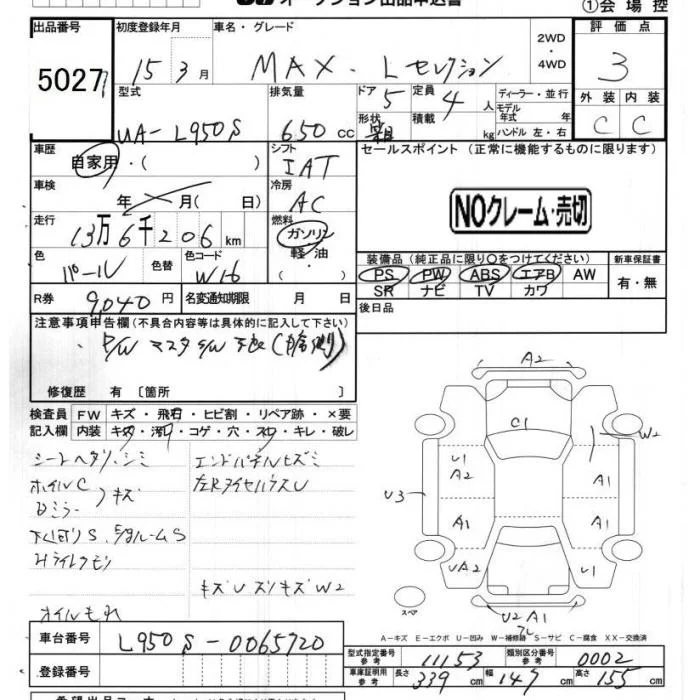 オークション出品申込書
①会場控
出品番号 初度登録年月 車名・グレード 2WD・4WD 評価点
5027 15 3月 MAX・Lセレクション 3
型式 排気量 ドア 5 定員 4人 ディーラー・並行 外装 内装
UA-L950S 650cc 形状 積載 kg モデル年式 年 C C
ハンドル 左・右
車歴 自家用・( ) シフト IAT セールスポイント(正常に機能するものに限ります)
車検 年 月( 日) 冷房 AC
NOクレーム・売切
走行 13万6千206km 燃料 ガソリン 軽油・( )
色 パール 色替 色コード W16
装備品(純正品に限り○をつけてください) 新車保証書
PS PW ABS エアB AW 有・無
SR ナビ TV カワ
R券 9,040円 名変通知期限 月 日 後日品
注意事項申告欄(不具合内容等は具体的に記入して下さい)
修復歴 有〔箇所 〕
検査員 FW キズ・飛石・ヒビ割・リペア跡・×要
記入欄 内装 キズ・汚れ・コゲ・穴・スレ・キレ・破レ
シートヘタリ、シミ
エンドパネルヒズミ
ホイルC
キズ
オイルもれ
A2
C1
W2
U1
A2
A1
U3
A1
A1
UA2
U1
スペア
U2 A1
A-キズ E-エクボ U-凹み W-補修跡 S-サビ C-腐食 XX-交換済
車台番号 L950S-0065720
型式指定番号 参考 11153 類別区分番号 参考 0002
登録番号
車庫証明用 参考 長さ 339cm 幅 147cm 高さ 155cm